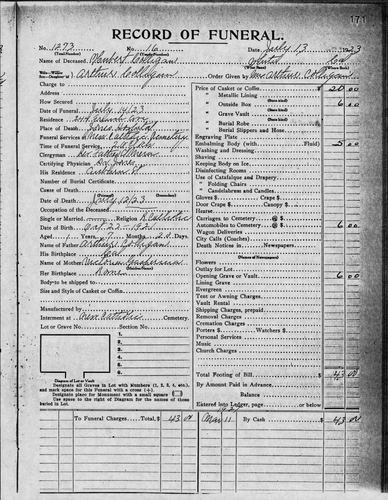 171
RECORD OF FUNERAL.
No. 1273 No. 16 Date, July 13 1923
(Total Number) (Yearly Number)
Name of Deceased,
Wife—Widow
Son—Daughter of Arthur Order Given by Mrs Arthur
Charge to
Address
How Secured
Date of Funeral, July 14/23
Residence
Place of Death,
Funeral Services at
Time of Funeral Service,
Clergyman
Certifying Physician
His Residence
Number of Burial Certificate
Cause of Death,
Date of Death, July 12/23
Occupation of Deceased,
Single or Married, Religion, R Catholic
Date of Birth,
Aged, Years, Months, Days
Name of Father, Arthur
His Birthplace
Name of Mother,
(Maiden Name)
Her Birthplace Rome
Body to be shipped to
Size and Style of Casket or Coffin
Manufactured by
Interment at New Catholic Cemetery.
Lot or Grave No. Section No.
1.
2.
3.
4.
5.
6.
Diagram of Lot or Vault
Designate all Graves in Lot with Numbers (1, 2, 3, 4, etc.), and mark space for this Funeral with a cross (+).
Designate place for Monument with a small square
Use space to the right of Diagram for the names of those buried in Lot.
Price of Casket or Coffin $ 20 00
" Metallic Lining
" Outside Box 6 00
" Grave Vault
" Burial Robe
(State kind)
" Burial Slippers and Hose
Engraving Plate
Embalming Body (with Fluid) 5 00
Washing and Dressing
Shaving
Keeping Body on Ice
Disinfecting Rooms
Use of Catafalque and Drapery
" Folding Chairs
" Candelabrum and Candles
Gloves $ Crape $
Door Crape $ Canopy $
Hearse
Carriages to Cemetery @ $
Automobiles to Cemetery @ $ 6 00
Wagon Deliveries
City Calls (Coaches)
Death Notices in Newspapers
(Names of Newspapers)
Flowers
Outlay for Lot
Opening Grave or Vault 6 00
Lining Grave
Evergreen
Tent or Awning Charges
Vault Rental
Shipping Charges, prepaid
Removal Charges
Cremation Charges
Porters $ Watchers $
Personal Services
Music
Church Charges
Total Footing of Bill $ 43 00
By Amount Paid in Advance
Balance
Entered into Ledger, page or below
To Funeral Charges Total, $ 43 00 Mar 11 By Cash $ 43 00